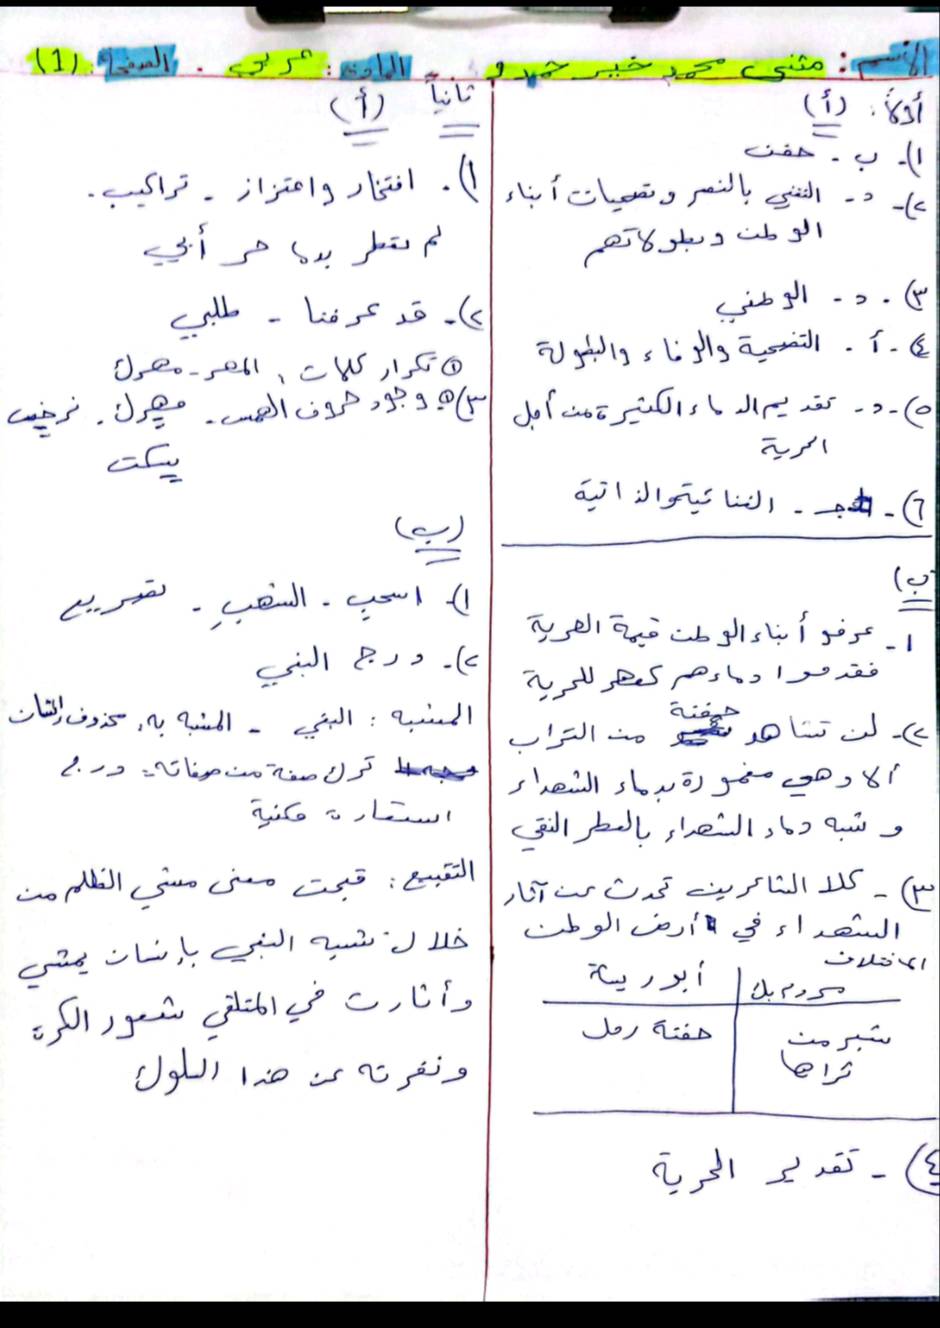 الاسم: مثنى محمد خير حمدو المادة: عربي. الصفحة: (1)
أولاً: (أ)
١)- ب - حفن
٢)- د- التغني بالنصر وتضحيات أبناء
الوطن وبطولاتهم
٣)- د- الوطني
٤)- أ- التضحية والوفاء والبطولة
٥)- د- تقديم الدماء الكثيرة من أجل
الحرية
٦)- ج- الغنائية والذاتية
(ب)
١- عرفو أبناء الوطن قيمة الحرية
فقدموا دماءهم كمهر للحرية
٢)- لن تشاهد حفنة من التراب
ألا وهي مغمورة بدماء الشهداء
وشبه دماء الشهداء بالعطر النقي
٣)- كلا الشاعرين تحدث عن آثار
الشهداء في أرض الوطن
الاختلاف
مردم بك أبو ريشة
شبر من حفنة رمل
ثراها
٤)- تقدير الحرية
ثانياً (أ)
١)- افتخار واعتزاز - تراكيب.
لم تعطر بدما حر أبي
٢)- قد عرفنا - طلبي
① تكرار كلمات: المهر - مهرك
٣) وجود حروف الهمس - مهرك. نرخص
(ب)
١)- اسحب - الشهب - تصريع
٢)- درج البغي
المشبه: البغي - المشبه به: محذوف إنسان
ترك صفة من صفاته: درج
استعارة مكنية
التقبيح: قبحت معنى مشي الظلم من
خلال تشبيه البغي بإنسان يمشي
وأثارت في المتلقي شعور الكره
ونفرته عن هذا السلوك